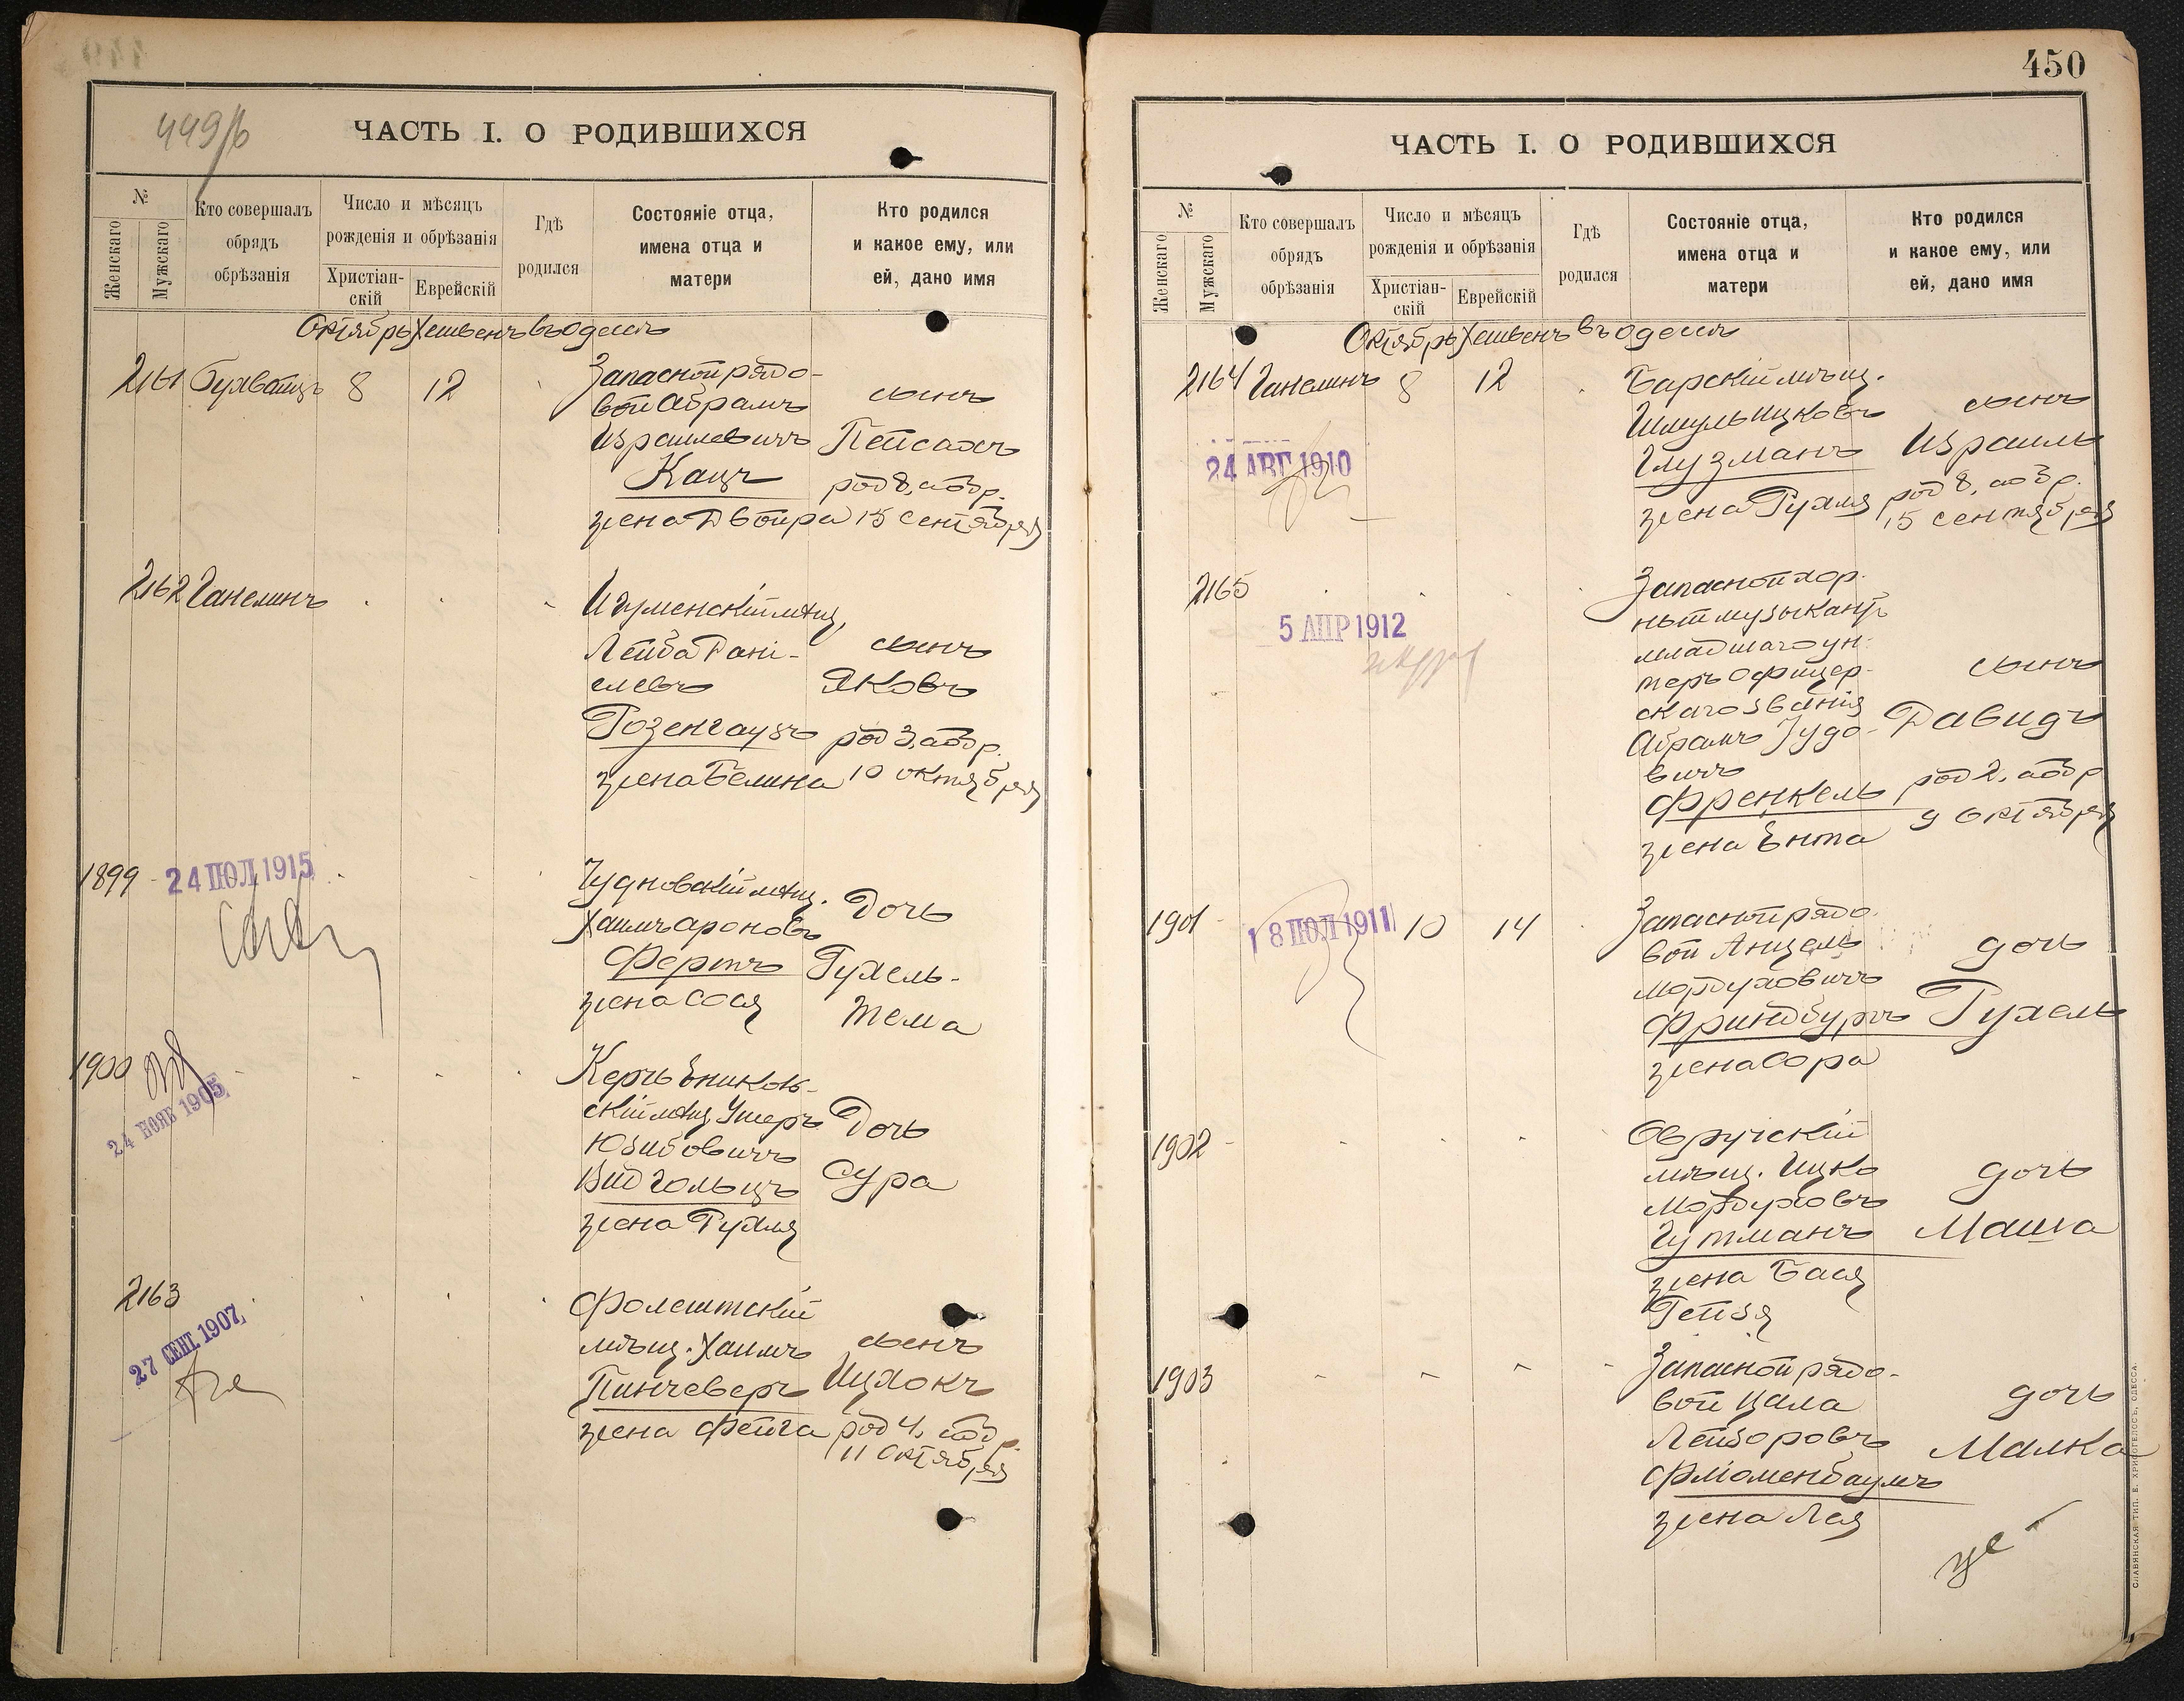 449/б
ЧАСТЬ I. О РОДИВШИХСЯ
№
Женскаго
Мужскаго
Кто совершалъ
обрядъ
обрѣзанія
Число и мѣсяцъ
рожденія и обрѣзанія
Христіан-
скій
Еврейскій
Гдѣ
родился
Состояніе отца,
имена отца и
матери
Кто родился
и какое ему, или
ей, дано имя
Октябрь Хешвенъ въ Одессѣ
2161 8 12
Запасной рядо-
вой Абрамъ
Израилевичъ
Кацъ
жена Двойра
сынъ
Пейсахъ
род 8, аобр.
15 сентября
2162 Ганелинъ
Игуменскій мѣщ.
Лейба Дані-
елевъ
Розенгаузъ
жена Белина
сынъ
Яковъ
род 3, аобр.
10 октября
1899
24 ІЮЛ 1915
Чудновскій мѣщ.
Хаимъ Ароновъ
Фертъ
жена Сося
Дочь
Рухель-
Тема
1900
24 НОЯБ 1905
Керчь Ениколь-
скій мѣщ. Ушеръ
Юзибовичъ
Видгольцъ
жена Рухля
Дочь
Сура
2163
27 СЕНТ. 1907
Фолештскій
мѣщ. Хаимъ
Пинчеверъ
жена Фейга
сынъ
Ицхокъ
род 4, аобр.
11 октября
450
ЧАСТЬ I. О РОДИВШИХСЯ
№
Женскаго
Мужскаго
Кто совершалъ
обрядъ
обрѣзанія
Число и мѣсяцъ
рожденія и обрѣзанія
Христіан-
скій
Еврейскій
Гдѣ
родился
Состояніе отца,
имена отца и
матери
Кто родился
и какое ему, или
ей, дано имя
Октябрь Хешвенъ въ Одессѣ
2164 Ганелинъ 8 12
24 АВГ 1910
Барскій мѣщ.
Шмуль Ицковъ
Глузманъ
жена Рухля
сынъ
Израиль
род 8, аобр.
15 сентября
2165
5 АПР 1912
Запасной хор.
ный музыкантъ
младшаго ун.
теръ офицер-
скаго званія
Абрамъ Іудо-
вичъ
Френкель
жена Ента
сынъ
Давидъ
род 2, аобр
9 октября
1901 10 14
18 ІЮЛ 1911
Запасной рядо.
вой Анцель
Мордуховичъ
Фриндбургъ
жена Сора
дочь
Рухель
1902
Овручскій
мѣщ. Ицко
Мордуховъ
Гутманъ
жена Бася
Рейзя
дочь
Маша
1903
Запасной рядо-
вой Цала
Лейзоровъ
Флюменбаумъ
жена Лея
дочь
Малка
СЛАВЯНСКАЯ ТИП. Е. ХРИСОГЕЛОСЪ, ОДЕССА.